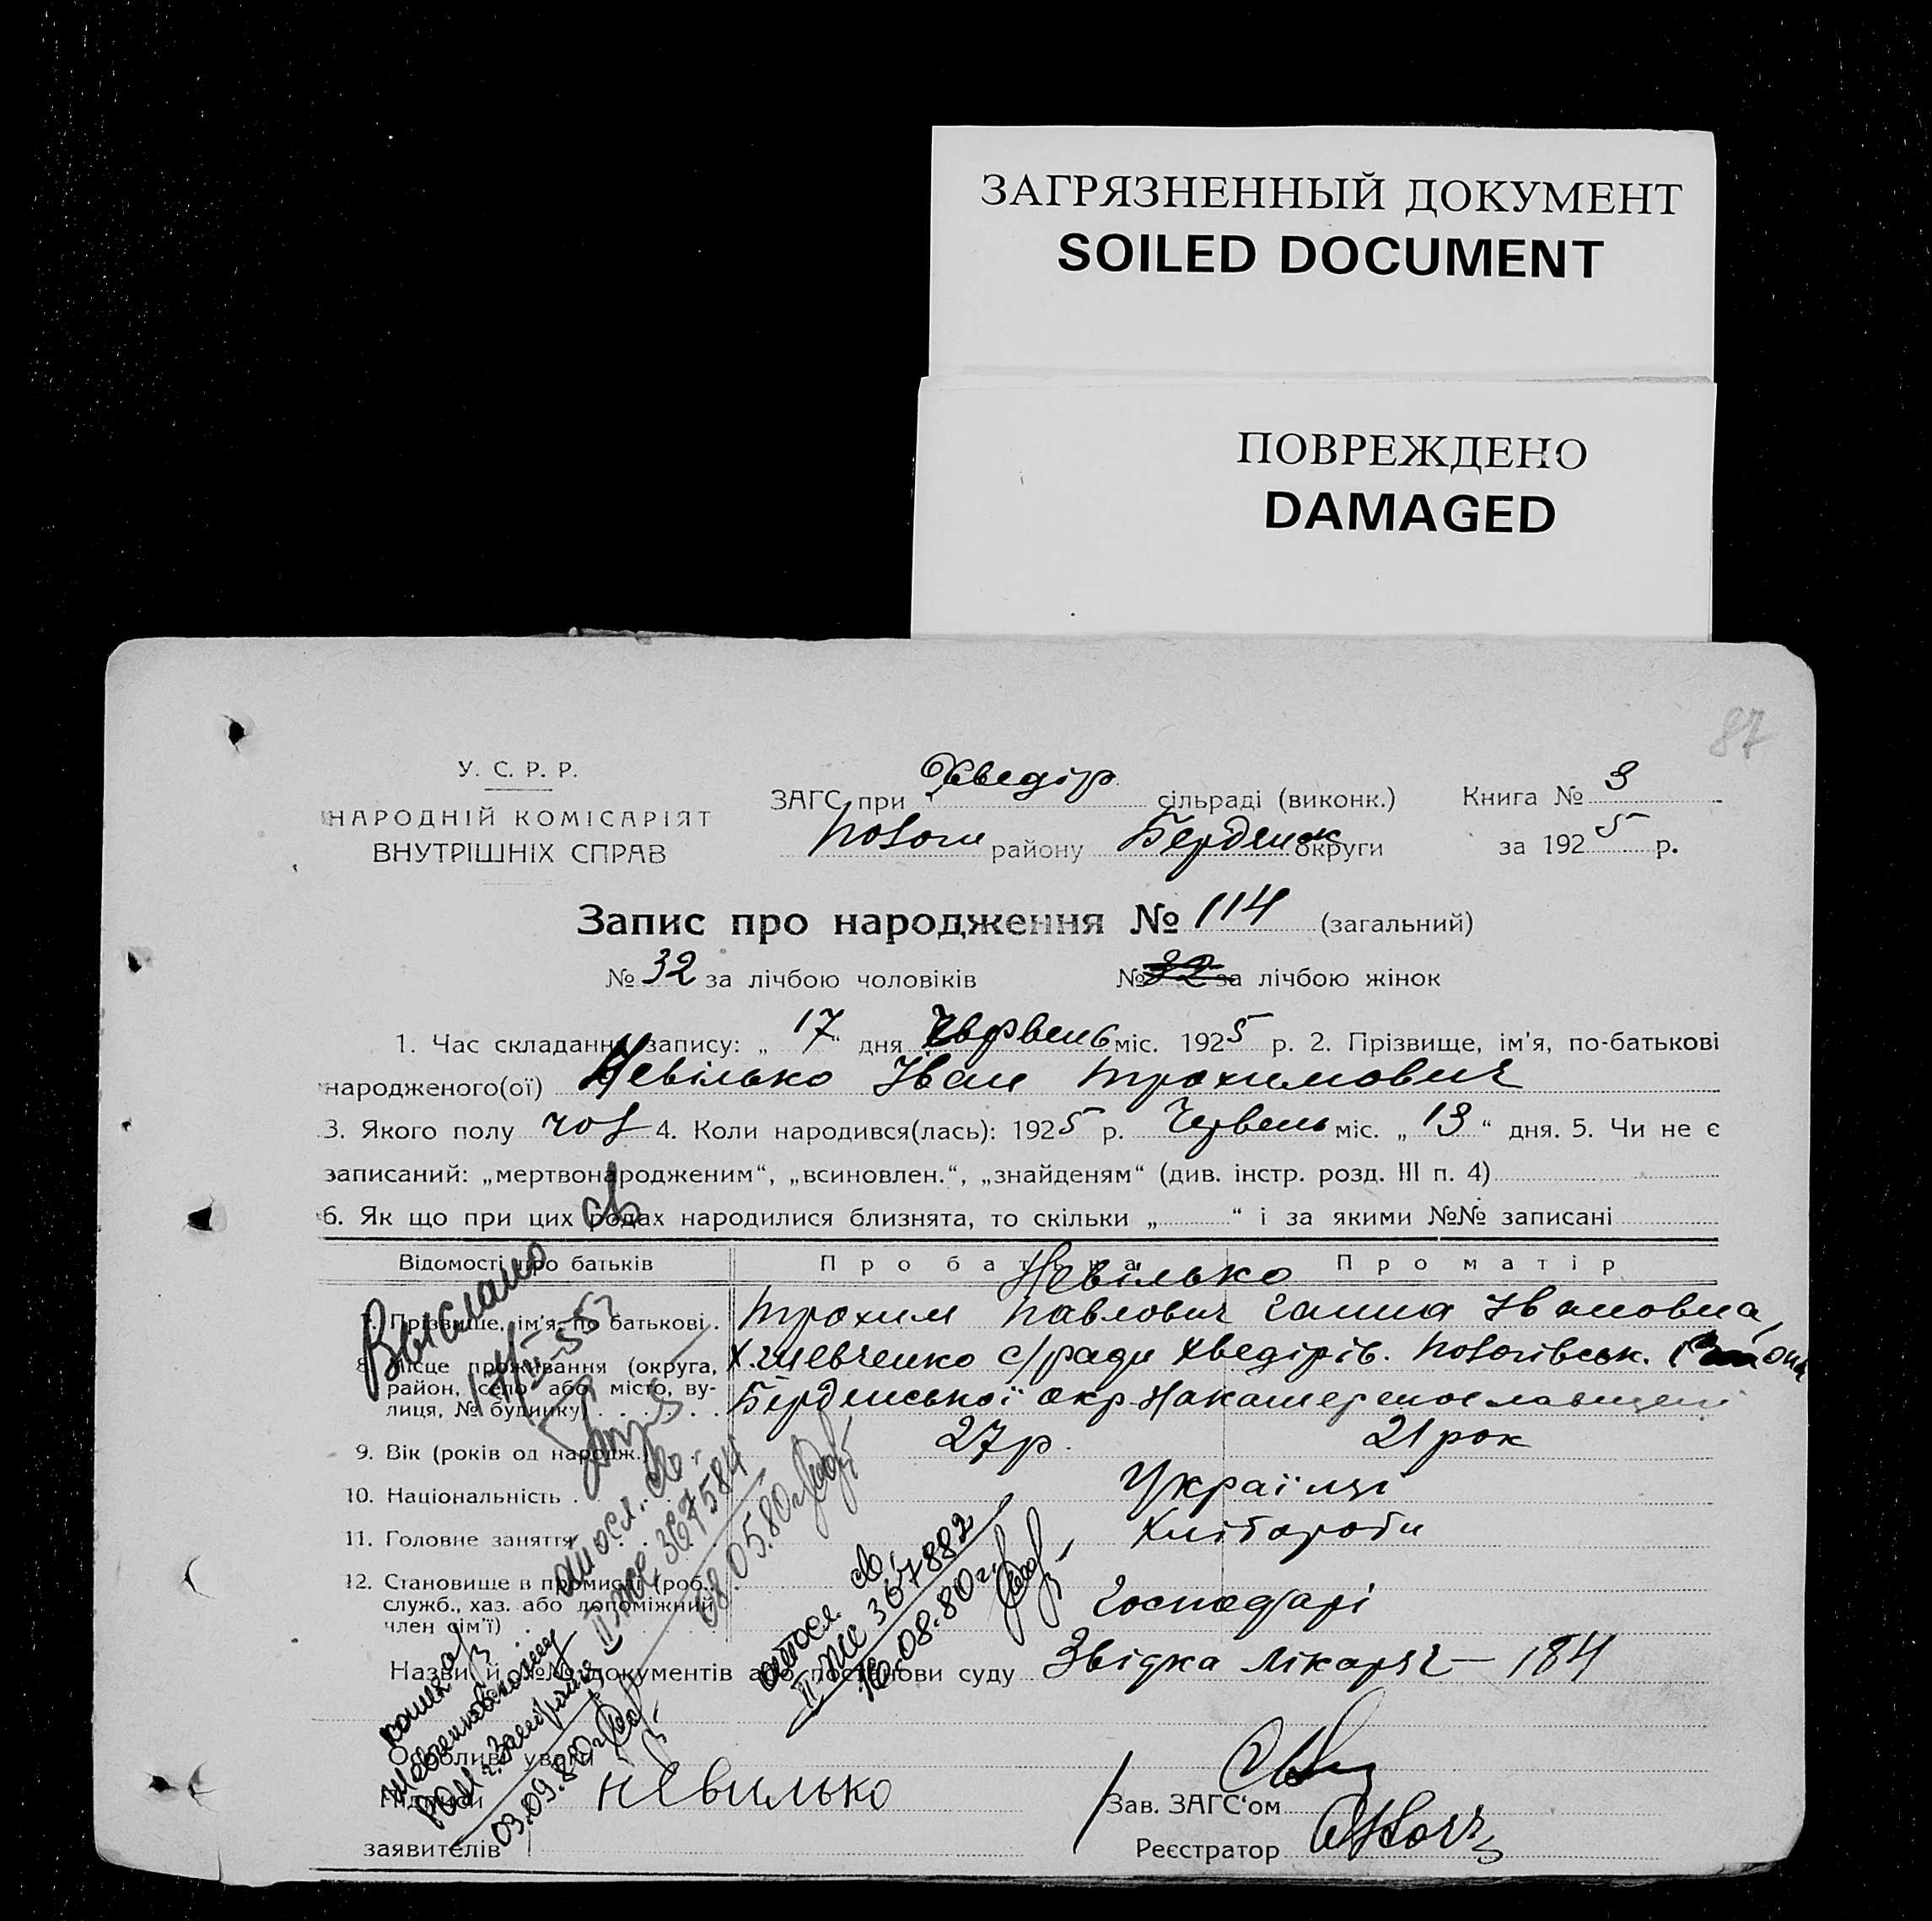 ЗАГРЯЗНЕННЫЙ ДОКУМЕНТ
SOILED DOCUMENT
ПОВРЕЖДЕНО
DAMAGED
87
У. С. Р. Р.
НАРОДНІЙ КОМІСАРІЯТ
ВНУТРІШНІХ СПРАВ
ЗАГС при Хведір сільраді (виконк.) Книга № 3
району Бердянск округи за 1925 р.
Запис про народження № 114 (загальний)
№ 32 за лічбою чоловіків № 32 за лічбою жінок
1. Час складання запису: „ 17 “ дня Червень міс. 1925 р. 2. Прізвище, ім'я, по-батькові
народженого(ої) Невілько Іван Трохимович
3. Якого полу чол 4. Коли народився(лась): 1925 р. Червень міс. „ 13 “ дня. 5. Чи не є
записаний: „мертвонародженим“, „всиновлен.“, „знайденям“ (див. інстр. розд. III п. 4)
6. Як що при цих родах народилися близнята, то скільки „ “ і за якими №№ записані
Відомості про батьків Про батька Про матір
Невілько
7. Прізвище, ім'я, по батькові. Трохим Павлович Ганна Івановна,
8. Місце проживання (округа, район, село або місто, вулиця, № будинку) Х. Шевченко с/ради Хведірів.
Бердянської окр.
9. Вік (років од народж.) 27 р. 21 рок
10. Національність Українці
11. Головне заняття Хлібороби
12. Становище в промислі (роб., служб., хаз. або допоміжний член сім'ї) Господарі
Назви й №№ документів або постанови суду Звідка Лікаря – 184
Особливі уваги
Підписи Невилько
Зав. ЗАГС'ом
заявителів Реєстратор
св
Выслано
повт. св
II-ЖС 367584
08.05.80г.
св
II-ЖС 367882
16.08.80г.
Шевченковскому
03.09.80г.